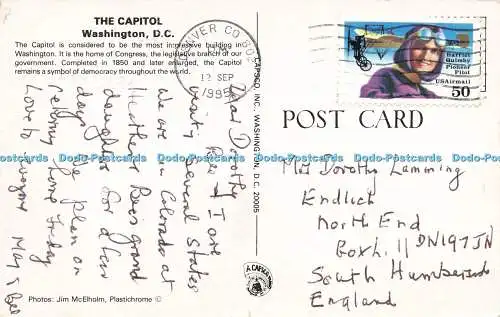 THE CAPITOL
Washington, D.C.
The Capitol is considered to be the most impressive building in
Washington. It is the home of Congress, the legislative branch of our
government. Completed in 1850 and later enlarged, the Capitol
remains a symbol of democracy throughout the world.
Dear Dorothy
Rees & I are
visiting Several States
we are in Colorado at
Heather Rees grand
daughter for a few
days. We plan on
Friday
Love to
May & Rees
Photos: Jim McElholm, Plastichrome ©
CAPSCO, INC., WASHINGTON, D.C. 20005
DENVER CO
12 SEP
1995
Harriet
Quimby
Pioneer
Pilot
USAirmail
50
POST CARD
Mrs Dorothy Lamming
Endlich
North End
Goxhill DN197JN
South Humberside
England
Dodo-Postcards Dodo-Postcards Dodo-Postcards Dodo-Postcards Dodo-Postcards